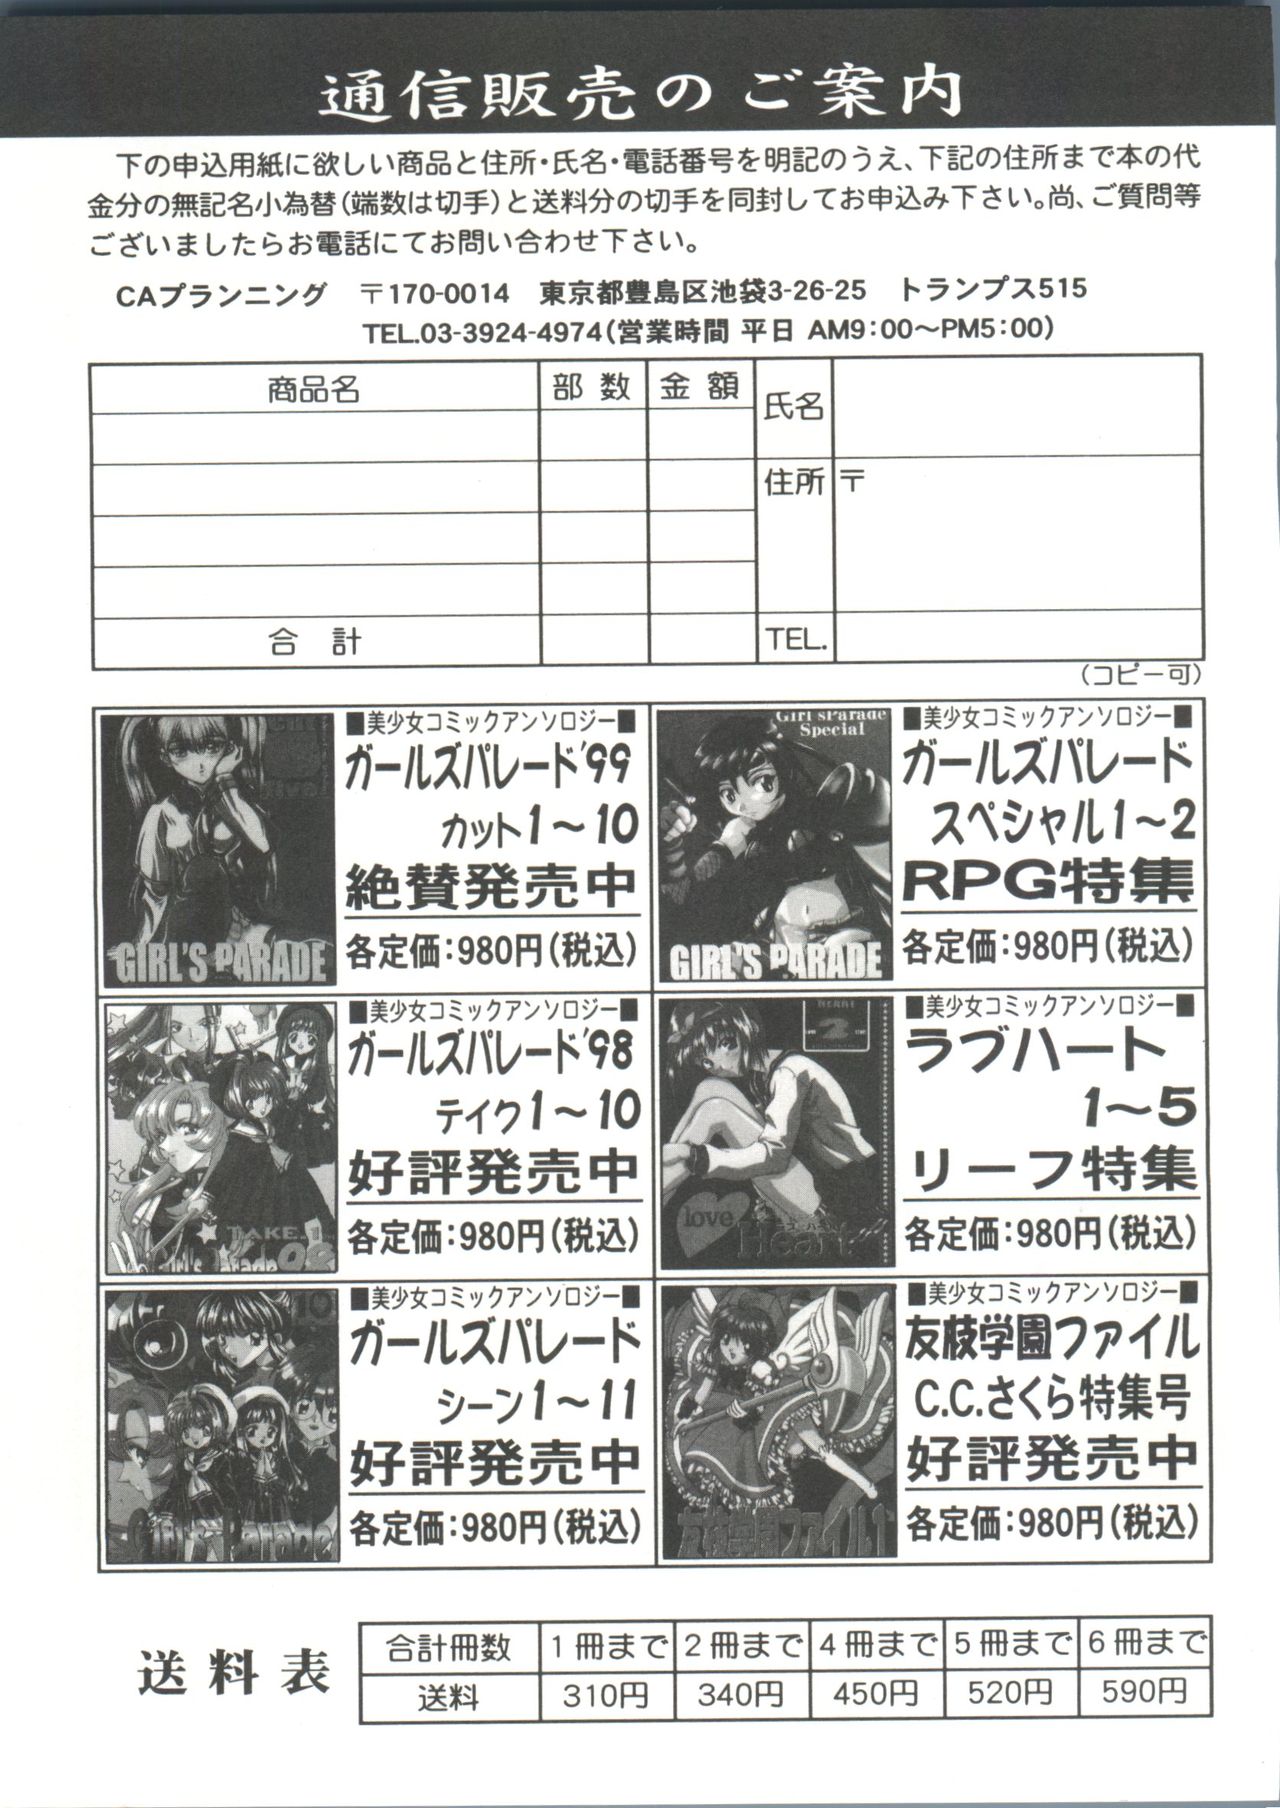 通信販売のご案内
下の申込用紙に欲しい商品と住所・氏名・電話番号を明記のうえ、下記の住所まで本の代
金分の無記名小為替(端数は切手)と送料分の切手を同封してお申込み下さい。尚、ご質問等
ございましたらお電話にてお問い合わせ下さい。
CAプランニング 〒170-0014 東京都豊島区池袋3-26-25 トランプス515
TEL.03-3924-4974(営業時間 平日 AM9:00〜PM5:00)
商品名 部数 金額 氏名
住所 〒
合計 TEL.
(コピー可)
GIRL'S PARADE
■美少女コミックアンソロジー■
ガールズパレード'99
カット1〜10
絶賛発売中
各定価:980円(税込)
Girl'sParade
Special
GIRL'S PARADE
■美少女コミックアンソロジー■
ガールズパレード
スペシャル1〜2
RPG特集
各定価:980円(税込)
TAKE.1
Girl's Parade 98
■美少女コミックアンソロジー■
ガールズパレード'98
テイク1〜10
好評発売中
各定価:980円(税込)
2
love
Heart
■美少女コミックアンソロジー■
ラブハート
1〜5
リーフ特集
各定価:980円(税込)
10
Girl's Parade
■美少女コミックアンソロジー■
ガールズパレード
シーン1〜11
好評発売中
各定価:980円(税込)
友枝学園ファイル1
■美少女コミックアンソロジー■
友枝学園ファイル
C.C.さくら特集号
好評発売中
各定価:980円(税込)
送料表
合計冊数 1冊まで 2冊まで 4冊まで 5冊まで 6冊まで
送料 310円 340円 450円 520円 590円